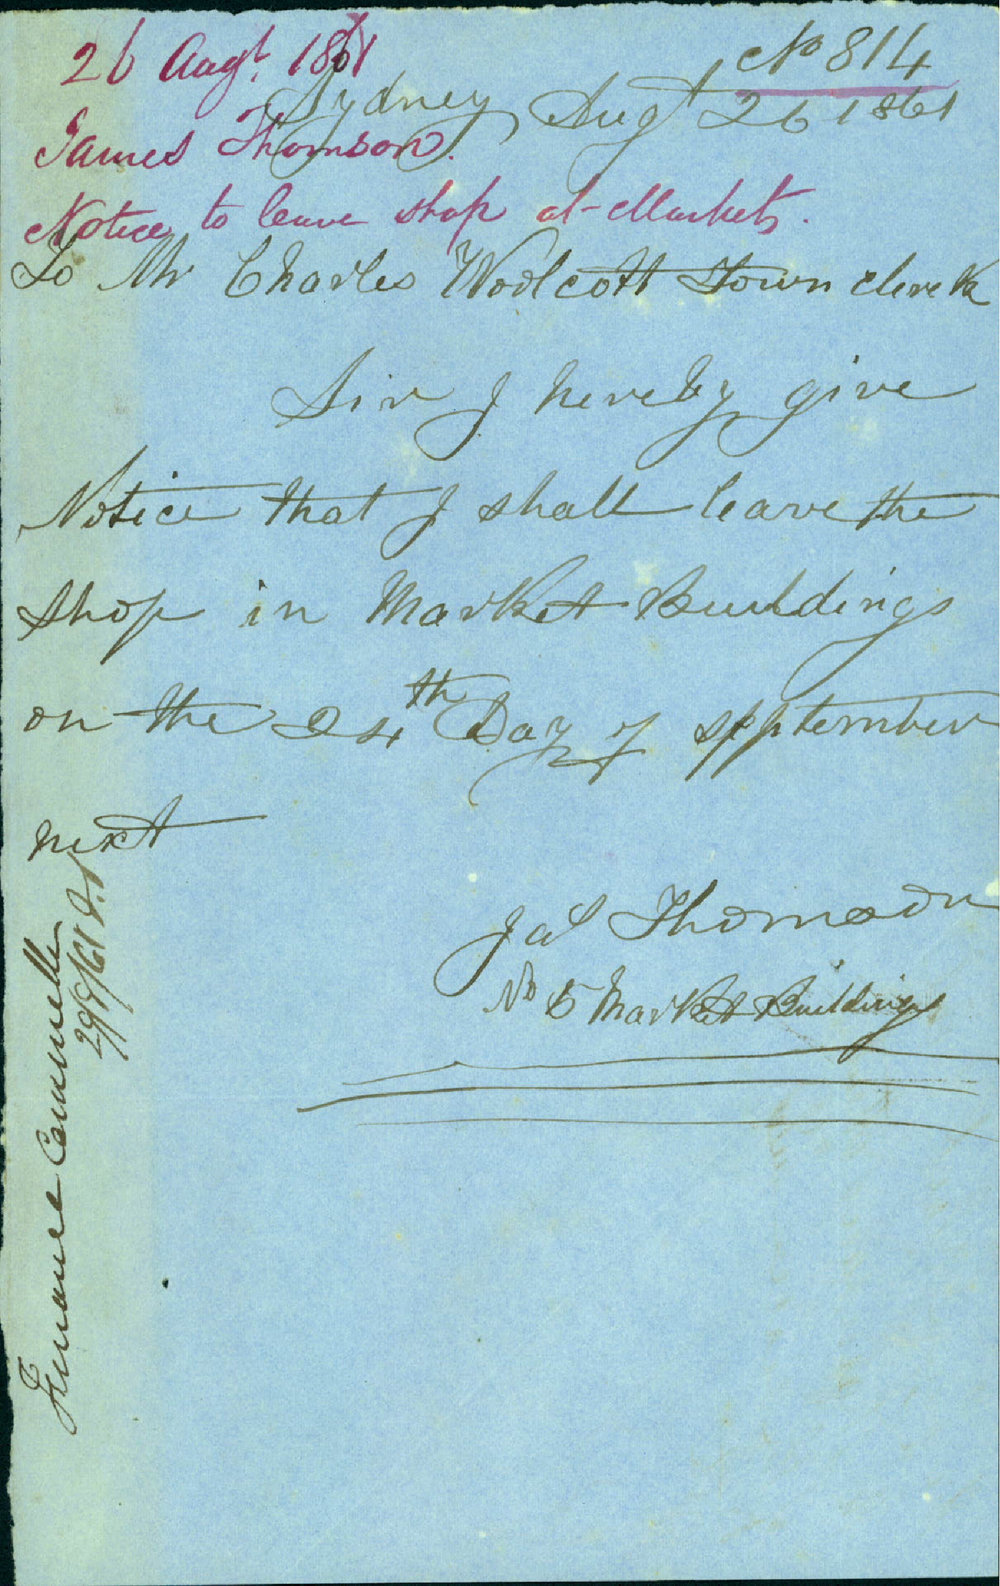 No 814
26 Augt. 1861
Sydney Augt 26 1861
James Thomson.
Notice to leave shop at Markets.
To Mr Charles Woolcott Town clerck
Sir I hereby give
Notice that I shall leave the
Shop in Market Buildings
on the 24th Day of September
next
Jas Thomson
No 5 Market Buildings
Finance Committee
29/8/61